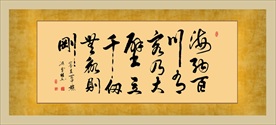 海納百
川有
容乃大
壁立
千仞
無欲則
剛